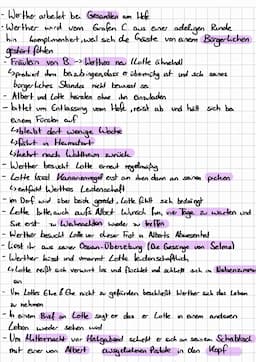 - Werther arbeitet bei Gesandten am Hof
- Werther wird vom Grafen C. aus einer adeligen Runde
hin komplimentiert, weil sich die Gäste von einem Bürgerlichen
gestört fühlen
- Fräulein von B. → Werthers neu (Lotte ähnelnd)
↳ probiert ihm bürgerliches Standes nicht bewusst
- Albert und Lotte heiraten ohne ihn einzuladen
- bittet um Entlassung vom Hofe, reist ab und hält sich bei
einem Fürsten auf
↳ bleibt dort wenige Woche
↳ fährt in Heimatort
↳ kehrt nach Wahlheim zurück
- Werther besucht Lotte erneut regelmäßig
- Lotte lässt Kanarienvogel erst an ihren dann an seine picken
↳ entfacht Werthers Leidenschaft
- im Dorf wird über beide geredet, Lotte fühlt sich bedrängt
- Lotte bittet, auch aufs Albert Wunsch hin, vier Tage zu warten und
Sie erst zu Weihnachten wieder zu treffen
- Werther besucht Lotte vor dieser Frist in Alberts Abwesenheit
- liest ihr aus seiner Ossian-Übersetzung (Die Gesänge von Selma)
- Werther küsst und umarmt Lotte leidenschaftlich,
↳ Lotte reißt sich verwirrt los und flüchtet und schließt sich in Nebenzimmer
ein
- Um Lottes Ehre & Ehe nicht zu gefährden beschließt Werther sich das Leben
zu nehmen
- In einem Brief an Lotte sagt er das er Lotte in einem anderen
Leben wieder sehen wird
- Um Mitternacht vor Heiligabend schießt er sich an seinem Schreibtisch
mit einer von Albert ausgeliehenen Pistole in den Kopf